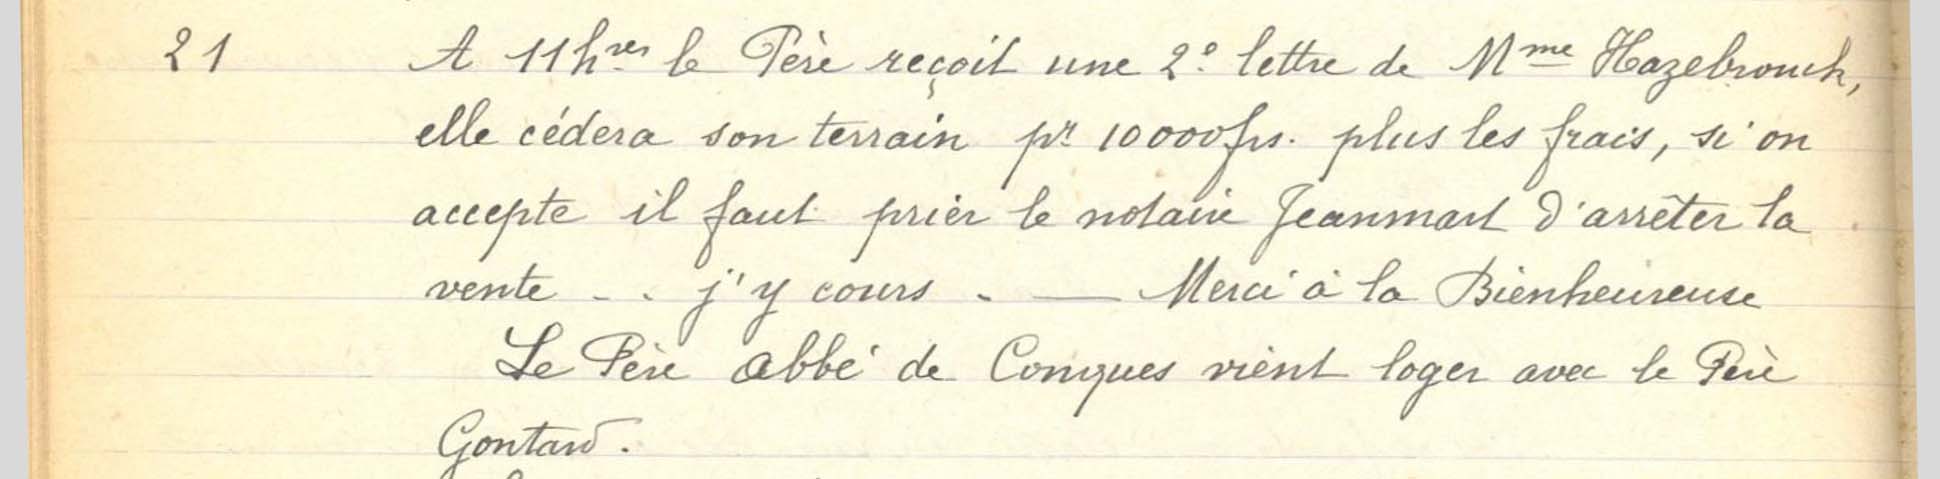 21 A 11hres le Père reçoit une 2e lettre de Mme Hazebrouck,
elle cédera son terrain pr 10000frs. plus les frais, si on
accepte il faut prier le notaire Jeanmart d'arrêter la
vente . . j'y cours . — Merci à la Bienheureuse
Le Père abbé de Conques vient loger avec le Père
Gontard.